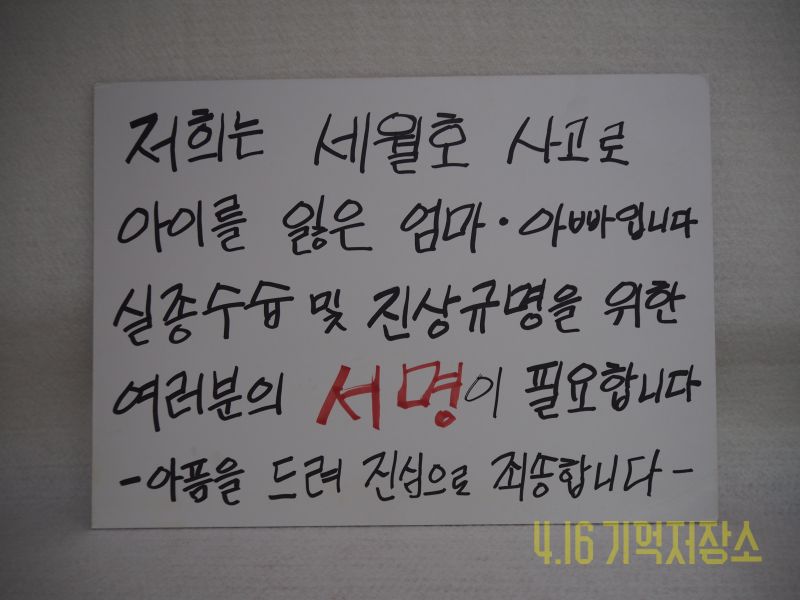 저희는 세월호 사고로
아이를 잃은 엄마·아빠입니다
실종수습 및 진상규명을 위한
여러분의 서명이 필요합니다
-아픔을 드려 진심으로 죄송합니다-
4.16 기억저장소